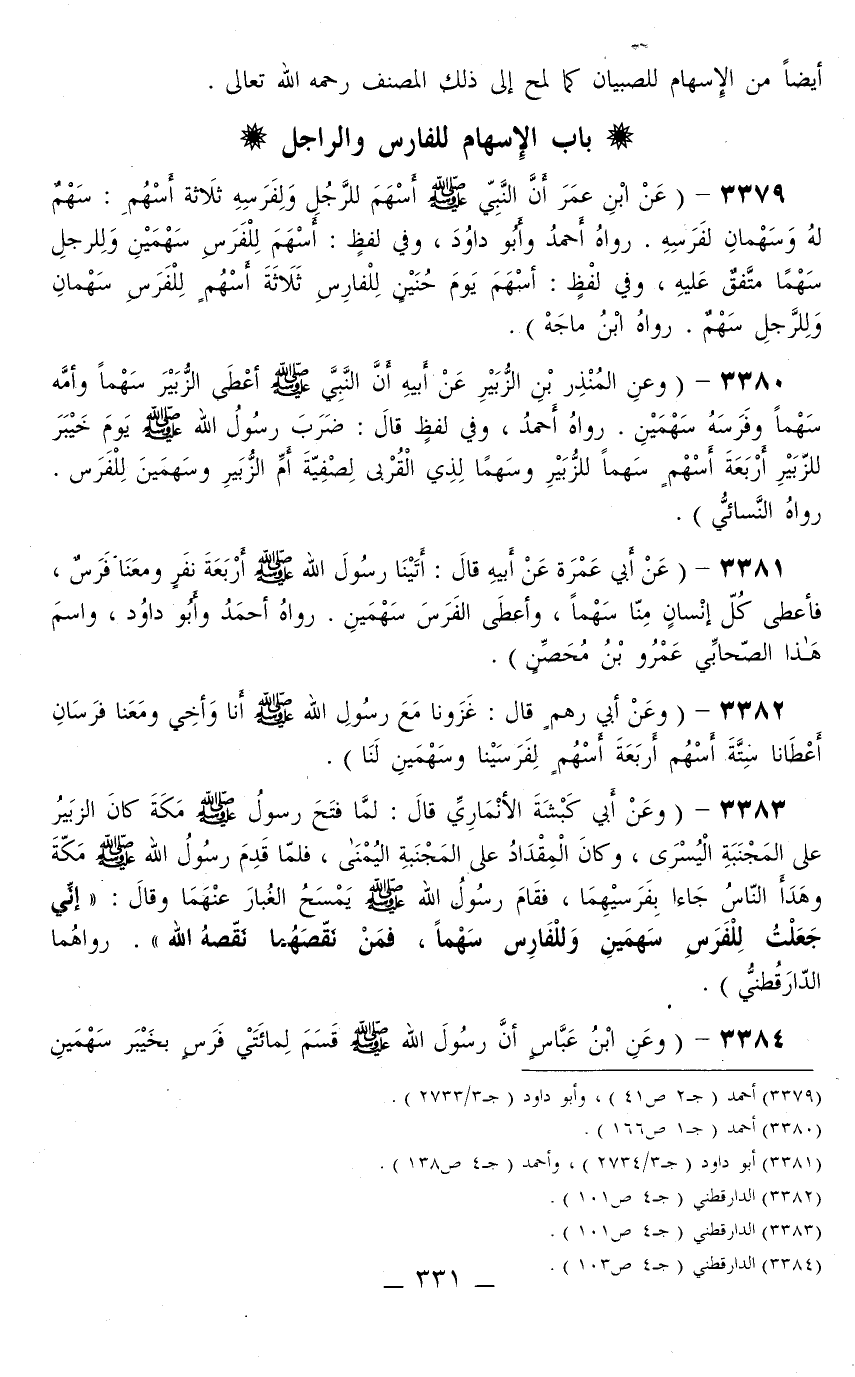 أيضاً من الإسهام للصبيان كما لمح إلى ذلك المصنف رحمه الله تعالى .
❋ باب الإسهام للفارس والراجل ❋
٣٣٧٩ – ( عَنْ ابْنِ عمَرَ أَنَّ النَّبِيّ ﷺ أَسْهَمَ للرَّجُلِ وَلِفَرَسِهِ ثلَاثة أَسْهُمٍ : سَهْمٌ
لهُ وَسَهْمانِ لفَرَسِهِ . رواهُ أَحمدُ وأَبُو داوُدَ ، وفي لفظٍ : أَسْهَمَ لِلْفَرَسِ سَهْمَيْنِ وَلِلرجلِ
سَهْمًا متَّفقٌ عَليهِ ، وفي لفْظٍ : أسْهَمَ يَومَ حُنَيْنٍ لِلْفارِسِ ثَلَاثَةَ أَسْهُمٍ لِلْفَرَسِ سَهْمانِ
وَلِلرَّجلِ سَهْمٌ . رواهُ ابْنُ ماجَهْ ) .
٣٣٨٠ – ( وعنِ المُنْذِر بْنِ الزُّبَيْرِ عَنْ أَبيهِ أَنَّ النَّبيَّ ﷺ أعْطَى الزُّبَيْرَ سَهْماً وأمَّه
سَهْماً وفَرَسَهُ سَهْمَيْنِ . رواهُ أَحمدُ ، وفي لفظٍ قالَ : ضَرَبَ رسولُ الله ﷺ يَومَ خَيْبَرَ
للزّبَيْرِ أَرْبَعَةَ أَسْهُمٍ سَهماً للزُّبَيْرِ وسَهمًا لِذِي الْقُرْبى لِصَفِيّةَ أُمِّ الزُّبَيرِ وسَهمَينَ لِلْفَرَس .
رواهُ النَّسائيُّ ) .
٣٣٨١ – ( عَنْ أَبي عَمْرَة عَنْ أَبيهِ قالَ : أَتَيْنَا رسُولَ الله ﷺ أَرْبَعَةَ نفَرٍ ومعَنَا فَرَسٌ ،
فأعطى كُلّ إنْسانٍ مِنّا سَهْماً ، وأعطَى الفَرَسَ سَهْمَينِ . رواهُ أحمَدُ وأَبُو داوُد ، واسمَ
هَـٰذا الصّحابِّي عَمْرُو بْنُ مُحَصِّنٍ ) .
٣٣٨٢ – ( وعَنْ أبي رهمٍ قال : غَزَونا مَعَ رسولِ الله ﷺ أَنا وَأخِي ومَعَنا فرَسَانِ
أَعْطَانا سَتَّةَ أَسْهُم أَربَعَةَ أَسْهُمٍ لِفَرَسَيْنا وسَهْمَينِ لَنَا ) .
٣٣٨٣ – ( وعَنْ أبي كَبْشَةَ الأنْمَارِيِّ قالَ : لمَّا فتَحَ رسولُ ﷺ مَكَةَ كانَ الزبَيرُ
على المَجْنَبَةِ الْيُسْرَى ، وكانَ الْمِقْدَادُ على المَجْنَبةِ اليُمْنَى ، فلمّا قَدِمَ رسُولُ الله ﷺ مَكّةَ
وهَدَأَ النّاسُ جَاءا بِفَرَسيهِمَا ، فقَامَ رسُولُ الله ﷺ يَمْسَحُ الغُبارَ عنْهَمَا وقالَ : « إنَّي
جَعَلْتُ لِلْفَرَسِ سَهمَينِ وَللْفَارِس سَهْماً ، فمَنْ نَقّصَهُمَا نَقّصهُ الله » . رواهُما
الدّارَقُطنيُّ ) .
٣٣٨٤ – ( وعَنِ ابْنُ عَبَّاسٍ أنَّ رسُولَ الله ﷺ قَسَمَ لِمائَتَيْ فَرَسٍ بخَيْبَر سَهْمَينِ
(٣٣٧٩) أحمد ( جـ٢ ص٤١ ) ، وأبو داود ( جـ٢٧٣٣/٣ ) .
(٣٣٨٠) أحمد ( جـ١ ص١٦٦ ) .
(٣٣٨١) أبو داود ( جـ٢٧٣٤/٣ ) ، وأحمد ( جـ٤ ص١٣٨ ) .
(٣٣٨٢) الدارقطني ( جـ٤ ص١٠١ ) .
(٣٣٨٣) الدارقطني ( جـ٤ ص١٠١ ) .
(٣٣٨٤) الدارقطني ( جـ٤ ص١٠٣ ) .
— ٣٣١ —